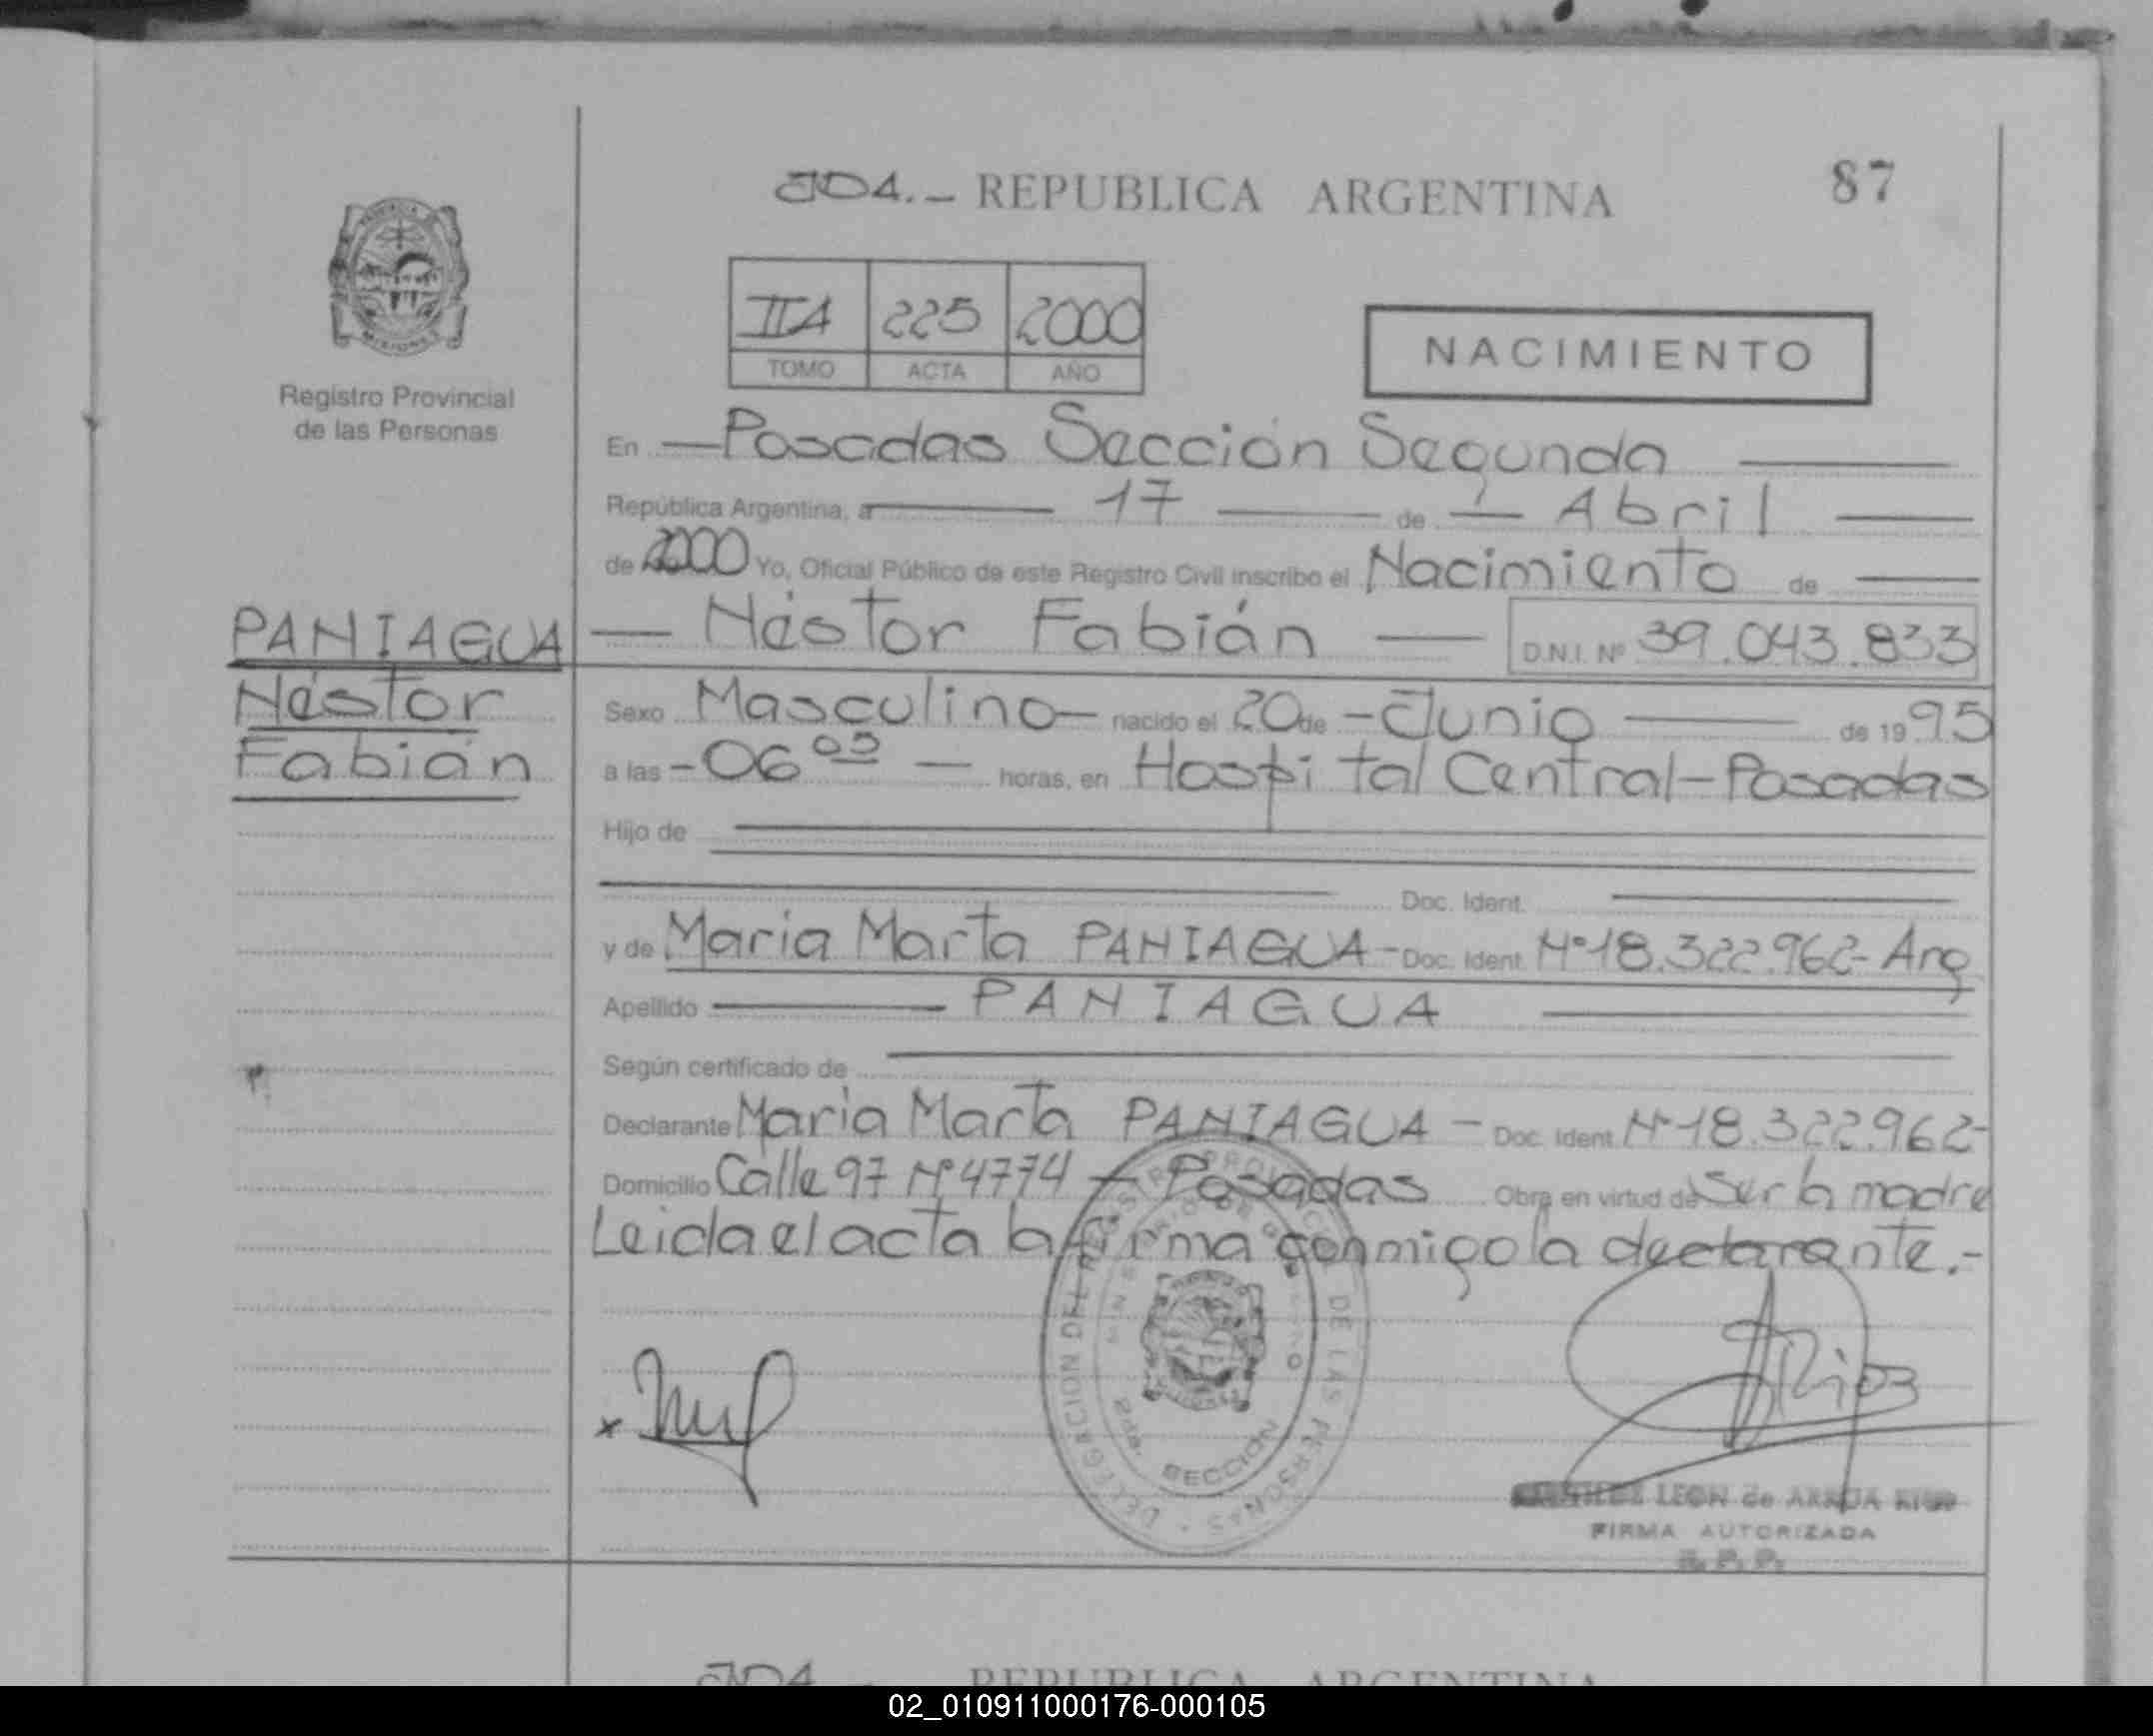 JDA.- REPUBLICA ARGENTINA 87
IIA 225 2000
TOMO ACTA AÑO
NACIMIENTO
Registro Provincial
de las Personas
En - Posadas Sección Segunda
República Argentina, a 17 de Abril
de 2000 Yo, Oficial Público de este Registro Civil inscribo el Nacimiento de
PANIAGUA
Néstor
Fabián
Néstor Fabián D.N.I. Nº 39.043.833
Sexo Masculino nacido el 20 de - Junio de 1995
a las - 06 05 - horas, en Hospital Central - Posadas
Hijo de
Doc. Ident.
y de Maria Marta PANIAGUA - Doc. Ident. Nº 18.322.962 - Arg
Apellido PANIAGUA
Según certificado de
Declarante Maria Marta PANIAGUA - Doc. Ident. Nº 18.322.962 -
Domicilio Calle 97 Nº 4774 - Posadas Obra en virtud de Ser la madre
Leida el acta la firma conmigo la declarante.-
DELEGACION DEL REGISTRO PROVINCIAL DE LAS PERSONAS
MINISTERIO DE GOBIERNO
2da. SECCION
LEON de ARRUA RIOS
FIRMA AUTORIZADA
R. P. P.
JDA.- REPUBLICA ARGENTINA
02_010911000176-000105